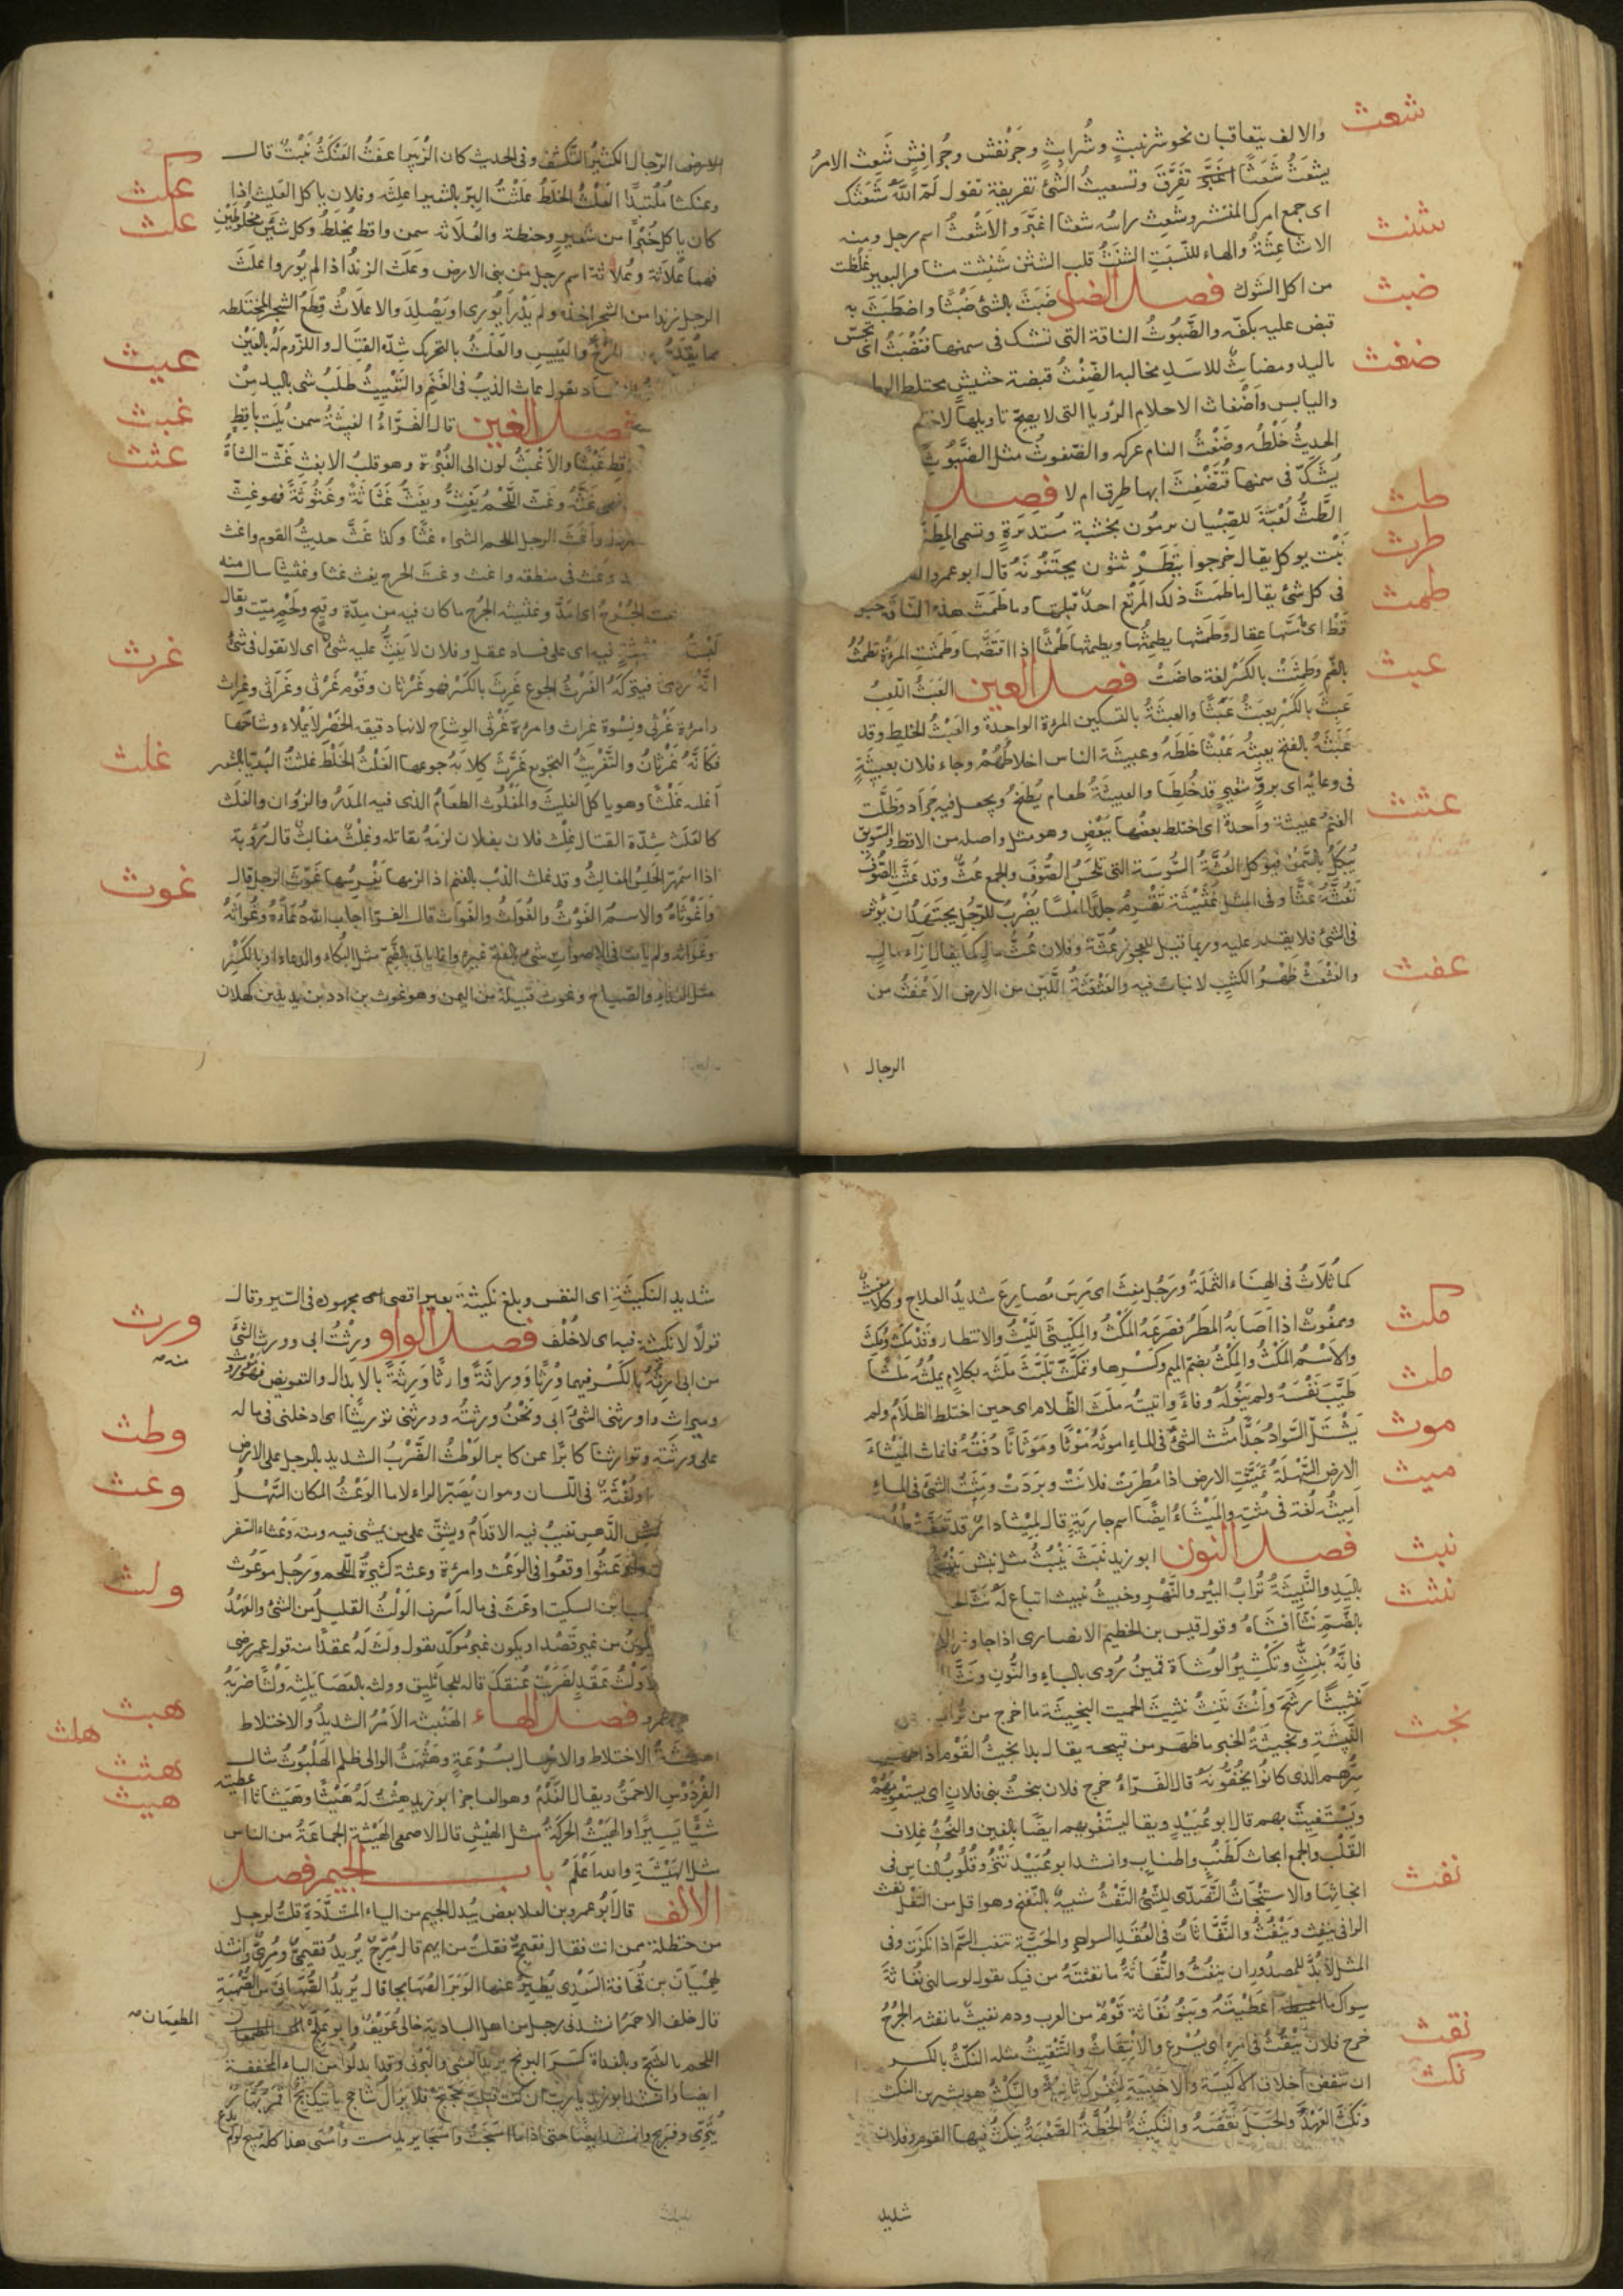 شعث
والالف يتعاقبان نحو شرنبث وشرابث وجرنفش وجرافش شعث الامر
يشعث شعثا تفرق وتشعيث الشئ تفريقه تقول لم الله شعثك
شنث
اى جمع امرك المنتشر وشعث راسه شعثا اغبر والاشعث اسم رجل ومنه
الاشاعثة والهاء للنسبة الشنث قلب الشثن شنثت مشافر البعير غلظت
ضبث
من اكل الشوك فصل الضاد ضبث بالشئ ضبثا واضطبث به
قبض عليه بكفه والضبوث الناقة التى تشك فى سمنها فتضبث اى تجس
ضغث
باليد ومضابث للاسد مخالبه الضغث قبضة حشيش مختلط
واليابس واضغاث الاحلام الرؤيا التى لا يصح تاويلها
الحديث خلطه وضغث السنام عركه والضغوث مثل الضبوث
يشك فى سمنها فتضغث ابها طرق ام لا فصل
طث
الطث لعبة للصبيان يرمون بخشبة مستديرة وتسمى المطثة
طرث
نبت يوكل يقال خرجوا يتطرثثون يجتنونه قال ابو عمرو
طمث
فى كل شئ يقال ما طمث ذلك المرتع احد قبلها وما طمث هذه الناقة
قط اى مسها عقال وطمثها يطمثها ويطمثها طمثا اذا افتضها وطمثت المرءة تطمث
عبث
بالضم وطمثت بالكسر لغة حاضت فصل العين العبث اللعب
عبث بالكسر يعبث عبثا والعبثة بالتسكين المرة الواحدة والعبث الخلط وقد
عبثه بالفتح يعبثه عبثا خلطه وعبيثة الناس اخلاطهم وجاء فلان بعبيثة
فى وعائه اى بر وشعير قد خلطا والعبيثة طعام يطبخ ويجعل فيه جراد وظلت
عثث
الغنم عبيثة واحدة اى اختلط بعضها ببعض وهو مثل واصله من الاقط والسويق
يبكل بالسمن فيوكل العثة السوسة التى تلحس الصوف والجمع عث وقد عثت الصوف
تعثه عثا وفى المثل عثيثة تقرم جلدا املسا يضرب للرجل يجتهد ان يوثر
فى الشئ فلا يقدر عليه وربما قيل للعجوز عثة وفلان عث مال كما يقال ازاء مال
عفث
والعثعث ظهر الكثيب لا نبات فيه والعثعثة اللين من الارض الاعفث من
الرجال
الرجال الكثير التكشف وفى الحديث كان الزبير اعفث العنكث نبت قال
عكث
وعنكثا ملتبدا العلث الخلط علثت البر بالشعير اعلثه وفلان ياكل العليث اذا
علث
كان ياكل خبزا من شعير وحنطة والعلاثة سمن واقط يخلط وكل شيئين مخلوطين
فهما علاثة وعلاثة اسم رجل من بنى الارض وعلث الزند اذا لم يور واعلث
الرجل زندا من الشجر اخذه ولم يدر ايورى او يصلد والاعلاث قطع الشجر المختلطه
عيث
مما يقدح به من المرخ واليبيس والعلث بالتحريك شدة القتال واللزوم له بالعين
يقول عاث الذيب فى الغنم والتعييث طلب شى باليد من
غبث
فصل الغين قال الفراء الغبيثة سمن يلت باقط
غثث
غبثا والاغبث لون الى الغبرة وهو قلب الابغث غثت الشاة
فهى غثة وغث اللحم يغث ويغث غثاثة وغثوثة فهو غث
واغث الرجل اللحم اشتراه غثا وكذا غث حديث القوم واغث
فى منطقه واغث وغث الجرح يغث غثا وغثيثا سال منه
الجرح اى امد وغثيثة الجرح ما كان فيه من مدة وقيح ولحم ميت ويقال
غرث
لبسته على غثيثة فيه اى على فساد عقل وفلان لا يغث عليه شئ اى لا يقول فى شئ
انه ردى فيتركه الغرث الجوع غرث بالكسر فهو غرثان وقوم غرثى وغراثى وغراث
وامرءة غرثى ونسوة غراث وامرءة غرثى الوشاح لانها دقيقه الخصر لا يملاء وشاحها
غلث
فكانه غرثان والتغريث التجويع غرث كلابه جوعها الغلث الخلط غلثت البر بالشعير
اغلثه غلثا وهو ياكل الغليث والمغلوث الطعام الذى فيه المدر والزوان والغلث
كالعلث شدة القتال غلث فلان بفلان لزمه يقاتله وغلث مغالث قال رؤبة
غوث
اذا اسمهر الحلس المغالث وقد غلث الذئب بالغنم اذا لزمها يفرسها غوث الرجل قال
واغوثاه والاسم الغوث والغواث والغواث قال الفرا اجاب الله دعاءه وغواثه
وغواثه ولم يات فى الاصوات شئ بالفتح غيره وانما ياتى بالضم مثل البكاء والدعاء او بالكسر
مثل النداء والصياح وغوث قبيلة من اليمن وهو غوث بن ادد بن زيد بن كهلان
كما ثلاث فى الهناء الثملة ورجل مغث اى مرس مصارع شديد العلاج وكلاء مغيث
مكث
وممغوث اذا اصابه المطر فصرعه المكث والمكيثى اللبث والانتظار وقد مكث ومكث
والاسم المكث والمكث بضم الميم وكسرها وتمكث تلبث ملثه بكلام يملثه ملثا
ملث
طيب نفسه ولم ينو له وفاء واتيته ملث الظلام اى حين اختلط الظلام ولم
موث
يشتد السواد جدا مثث الشئ فى الماء اموثه موثا وموثانا دفته فانماث الميثاء
ميث
الارض السهلة تميثت الارض اذا مطرت فلانت وبردت ومثت الشئ فى الماء
اميثه لغة فى مثته والميثاء ايضا اسم جارية قال لميثاء دار قد تعفت
نبث
فصل النون ابو زيد نبث ينبث مثل نبش ينبش
نثث
باليد والنبيثة تراب البئر والنهر وخبيث نبيث اتباع له نث
بالضم نثا افشاه وقول قيس بن الخطيم الانصارى اذا جاوز
فانه بنث وتكثير الوشاة قمين يروى بالباء والنون ونث
نثيثا رشح وانت تنث نثيث الحميت النجيثة ما اخرج من تراب
نجث
النبيثة ونجيثة الخبر ما ظهر من قبيحه يقال بدا نجيث القوم اذا ظهر
سرهم الذى كانوا يخفونه قال الفراء خرج فلان ينجث بنى فلان اى يستغويهم
ويستغيث بهم قال ابو عبيد ويقال يستعويهم ايضا بالعين والنجث غلاف
القلب والجمع انجاث كطنب واطناب وانشد ابو عبيد تنزو قلوب الناس فى
نفث
انجاثها والاستنجاث التصدى للشئ النفث شبيه بالنفخ وهو اقل من التفل نفث
الراقى ينفث وينفث والنفاثات فى العقد السواحر والحية تنفث السم اذا نكزت وفى
المثل لا بد للمصدور ان ينفث والنفاثة ما نفثته من فيك يقول لو سالنى نفاثة
سواك ما اعطيته وبنو نفاثة قوم من العرب ودم نفيث ما نفثه الجرح
نقث
خرج فلان ينقث فى امره اى يسرع والانتقاث والتنقيث مثله النكث بالكسر
نكث
ان تنقض اخلاق الاكسية والاخبية لتغزل ثانية والنكث هو بشير بن النكث
ونكث العهد والحبل نقضه والنكيثة الخطة الصعبة ينكث فيها القوم وفلان
شديد
شديد النكيثة اى النفس وبلغ نكيثة بعيره اقصى مجهوده فى السير وقال
ورث
قولا لا نكيثة فيه اى لا خلف فصل الواو ورثت ابى وورثت الشئ
منه
من ابى ارثه بالكسر فيهما ورثا ووراثة وارثا ورثة بالابدال والتعويض
وميراث واورثنى الشئ ابى ونحن ورثته وورثنى توريثا اى ادخلنى فى ماله
وطث
على ورثته وتوارثنا كابرا عن كابر الوطث الضرب الشديد بالرجل على الارض
وعث
او لثغة فى اللسان وهو ان يصير الراء لاما الوعث المكان السهل
الدهس تغيب فيه الاقدام ويشق على من يمشى فيه ومنه وعثاء السفر
واوعثوا وقعوا فى الوعث وامرءة وعثة كثيرة اللحم ورجل موعوث
ولث
ابن السكيت اوعث فى ماله اسرف الولث القليل من الشئ والعهد
يكون من غير قصد او يكون غير موكد يقول ولث له عقدا منه قول عمر رضى
ولث عقد لضربت عنقك قاله للجاثليق وولثه بالعصا يلثه ولثا ضربه
هبث
فصل الهاء الهنبثة الامر الشديد والاختلاط
هلث
هثث
الهثهثة الاختلاط والارسال بسرعة وهثهث الوالى ظلم الهلبوث مثال
هيث
الفردوس الاحمق ويقال الفدم وهو العاجز ابو زيد هثت له هيثا وهيثانا اعطيته
شيئا يسيرا والهيث الحركة مثل الهيش قال الاصمعى الهيثة الجماعة من الناس
مثل الهيشة والله اعلم باب الجيم فصل
الالف قال ابو عمرو بن العلا بعض يبدل الجيم من الياء المشددة قلت لرجل
من حنظلة ممن انت فقال فقيمج فقلت من ايهم قال مرج يريد فقيمى ومرى وانشد
هميان بن قحافة السعدى يطير عنها الوبر الصهابجا قال يريد الصهابى من الصهبة
المطعمان
قال خلف الاحمر انشدنى رجل من اهل البادية خالى عويف وابو علج
اللحم بالعشج وبالغداة كسر البرنج يريد العشى والبرنى وقد ابدلوا من الياء المخففة
ايضا وانشد ابو زيد يا رب ان كنت قبلت حجتج فلا يزال شاحج ياتيك بج اقمر نهات
ينزى وفرتج وانشد ايضا حتى اذا ما امسجت وامسجا يريد امست وامسى هذا كله قبيح